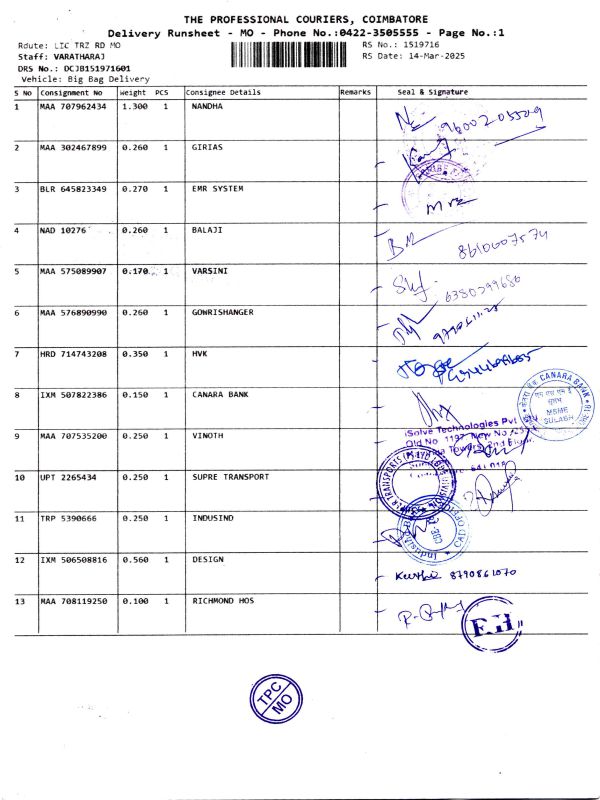 THE PROFESSIONAL COURIERS, COIMBATORE
Delivery Runsheet - MO - Phone No.:0422-3505555 - Page No.:1
Route: LIC TRZ RD MO
RS No.: 1519716
Staff: VARATHARAJ
RS Date: 14-Mar-2025
DRS No.: DCJB151971601
Vehicle: Big Bag Delivery
S No Consignment No Weight PCS Consignee Details Remarks Seal & Signature
1 MAA 707962434 1.300 1 NANDHA
2 MAA 302467899 0.260 1 GIRIAS
3 BLR 645823349 0.270 1 EMR SYSTEM
4 NAD 10276 0.260 1 BALAJI
5 MAA 575089907 0.170 1 VARSINI
6 MAA 576890990 0.260 1 GOWRISHANGER
7 HRD 714743208 0.350 1 HVK
8 IXM 507822386 0.150 1 CANARA BANK
CANARA BANK
MSME
SULABH
iSolve Technologies Pvt
9 MAA 707535200 0.250 1 VINOTH
10 UPT 2265434 0.250 1 SUPRE TRANSPORT
11 TRP 5390666 0.250 1 INDUSIND
12 IXM 506508816 0.560 1 DESIGN
8790861070
13 MAA 708119250 0.100 1 RICHMOND HOS
TPC
MO